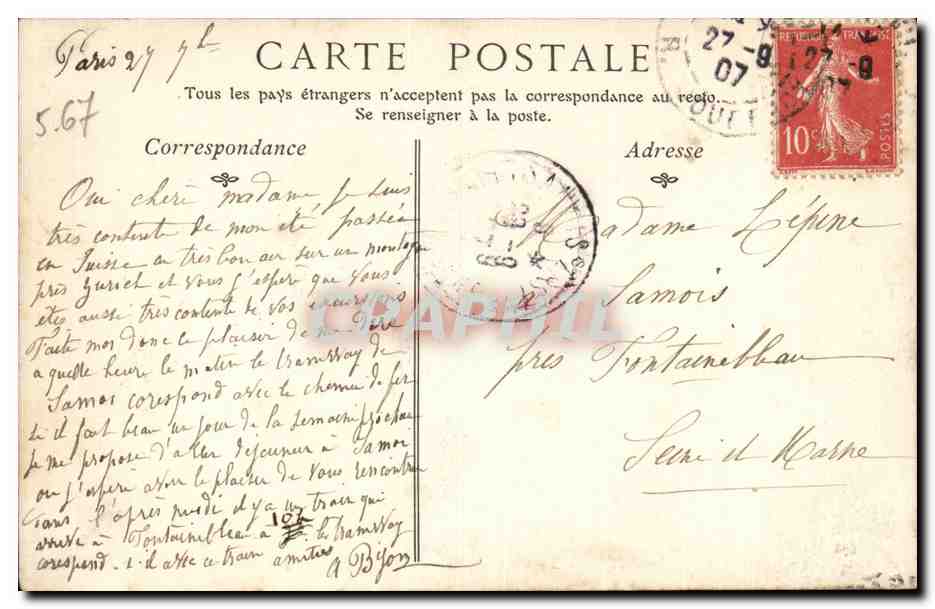 Paris 27 7bre
CARTE POSTALE
Tous les pays étrangers n'acceptent pas la correspondance au recto.
Se renseigner à la poste.
5.67
Correspondance
Oui chère madame je suis
très contente de mon été passée
en Suisse en très bon air sur un montagne
près Zurich et vous j'espère que vous
êtes aussi très contente de vos excursions
Faite moi donc ce plaisir de me dire
a quelle heure le matin le tramway de
Samoi corespond avec le chemin de fer
si il fait beau un jour de la semaine prochai
je me propose d'aller déjeuner à Samoi
ou j'espère avoir le plaisir de vous rencontrer
dans l'après midi il y a un train qui
arrive à Fontainebleau a 10h le tramway
corespond-t-il avec ce train amitiés
A Bijon
Adresse
Madame Lépine
Samois
près Fontainebleau
Seine et Marne
27 -9
07
27 -9
07
REPUBLIQUE FRANÇAISE
10c
POSTES
CRAPHIL